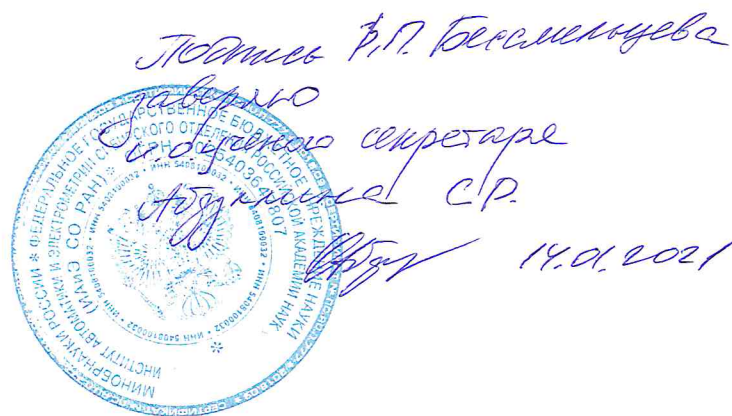 Подпись В.П. Бессмельцева
заверяю
и.о. ученого секретаря
Абдуллина С.Р.
14.01.2021
МИНОБРНАУКИ РОССИИ * ФЕДЕРАЛЬНОЕ ГОСУДАРСТВЕННОЕ БЮДЖЕТНОЕ УЧРЕЖДЕНИЕ НАУКИ
ИНСТИТУТ АВТОМАТИКИ И ЭЛЕКТРОМЕТРИИ СИБИРСКОГО ОТДЕЛЕНИЯ РОССИЙСКОЙ АКАДЕМИИ НАУК
(ИАиЭ СО РАН) *
ИНН 5408100032 * ИНН 5408100032 * ИНН 5408100032